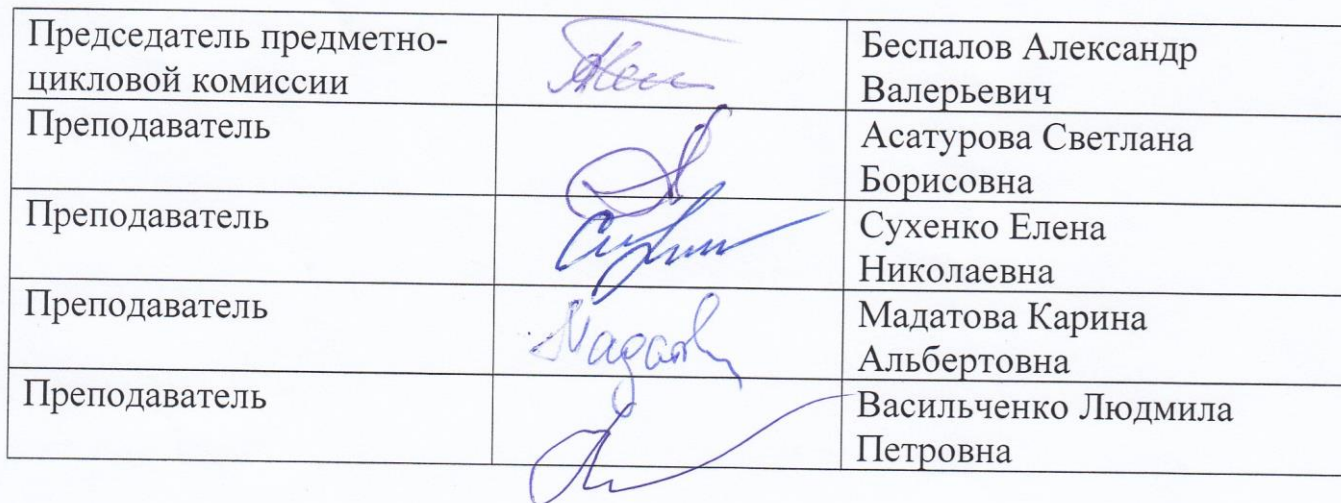 Председатель предметно-
цикловой комиссии
Беспалов Александр
Валерьевич
Преподаватель
Асатурова Светлана
Борисовна
Преподаватель
Сухенко Елена
Николаевна
Преподаватель
Мадатова Карина
Альбертовна
Преподаватель
Васильченко Людмила
Петровна